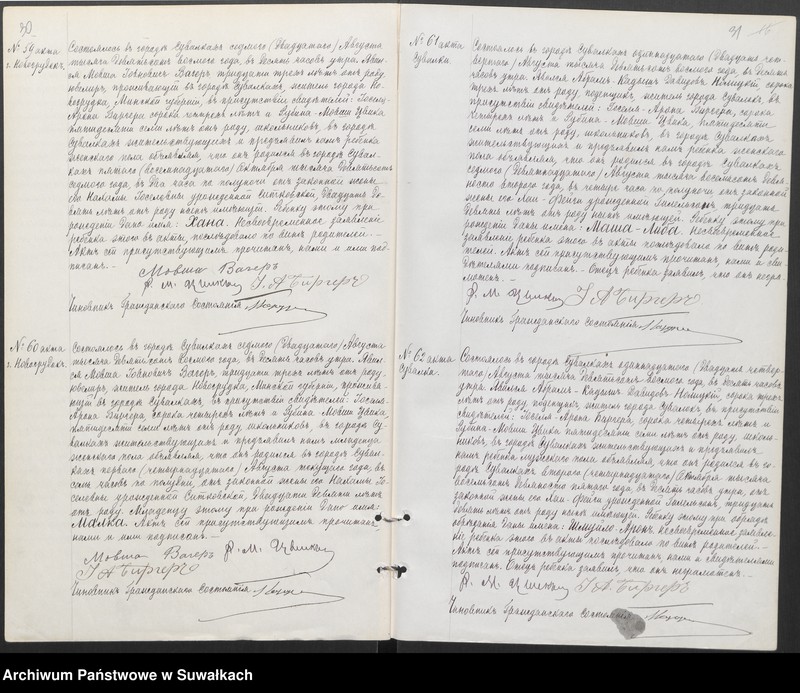 30
№ 59 акта
г. Новогрудокъ.
Состоялось въ городѣ Сувалкахъ седмого (двадцатаго) Августа
тысяча девятьсотъ восьмого года, въ десять часовъ утра. Явил-
ся Мовша Вагеръ тридцати трехъ лѣтъ отъ роду,
ювелиръ, проживающій въ городѣ Сувалкахъ, житель города Но-
вогрудка, Минской губерніи, въ присутствіи свидѣтелей: Іоселя-
Арона Биргера сорока четырехъ лѣтъ и Рубина-Мовши Цвика
пятидесяти семи лѣтъ отъ роду, школьниковъ, въ городѣ
Сувалкахъ жительствующихъ и предъявилъ намъ ребенка
женскаго пола объявляя, что онъ родился въ городѣ Сувал-
кахъ пятаго (восемнадцатаго) Октября тысяча девятьсотъ
седьмого года, въ два часа по полуночи отъ законной жены
его урожденной Ситковской, двадцати де-
вяти лѣтъ отъ роду нынѣ имѣющей. Ребенку этому при
рожденіи дано имя: Хана. Несвоевременное заявленіе
ребенка этого въ актъ, послѣдовало по винѣ родителей. —
Актъ сей присутствующимъ прочитанъ, нами и ими под-
писанъ. —
Мовша Вагеръ
Р. М. Цвикъ І А Биргеръ
Чиновникъ Гражданскаго Состоянія
№ 60 акта
г. Новогрудокъ.
Состоялось въ городѣ Сувалкахъ седмого (двадцатаго) Августа
тысяча девятьсотъ восьмого года, въ десять часовъ утра. Явил-
ся Мовша Вагеръ, тридцати трехъ лѣтъ отъ роду,
ювелиръ, житель города Новогрудка, Минской губерніи, прожива-
ющій въ городѣ Сувалкахъ, въ присутствіи свидѣтелей: Іоселя-
Арона Биргера, сорока четырехъ лѣтъ и Рубина-Мовши Цвика,
пятидесяти семи лѣтъ отъ роду, школьниковъ, въ городѣ Су-
валкахъ жительствующихъ и предъявилъ намъ младенца
женскаго пола объявляя, что онъ родился въ городѣ Сувал-
кахъ перваго (четырнадцатаго) Августа текущаго года, въ
семь часовъ по полудни, отъ законной жены его Іо-
селевны урожденной Ситковской, двадцати девяти лѣтъ
отъ роду. Младенцу этому при рожденіи дано имя:
Малка. Актъ сей присутствующимъ прочитанъ,
нами и ими подписанъ. —
Мовша Вагеръ Р. М. Цвикъ
І А Биргеръ
Чиновникъ Гражданскаго Состоянія
31
№ 61 акта
Сувалки.
Состоялось въ городѣ Сувалкахъ одиннадцатаго (двадцать чет-
вертаго) Августа тысяча девятьсотъ восьмого года, въ десять
часовъ утра. Явился Абрамъ-Кадышъ Давидовъ Нѣмцкій, сорока
трехъ лѣтъ отъ роду, поденщикъ, житель города Сувалкъ, въ
присутствіи свидѣтелей: Іоселя-Арона Биргера, сорока
четырехъ лѣтъ и Рубина-Мовши Цвика, пятидесяти
семи лѣтъ отъ роду, школьниковъ, въ городѣ Сувалкахъ
жительствующихъ и предъявилъ намъ ребенка женскаго
пола объявляя, что онъ родился въ городѣ Сувалкахъ
седмого (девятнадцатаго) Августа тысяча восемьсотъ девя-
носто второго года, въ четыре часа по полуночи отъ законной
жены его Хаи-Фейги урожденной тридцати
девяти лѣтъ отъ роду нынѣ имѣющей. Ребенку этому при
рожденіи даны имена: Маша-Люба. Несвоевременное
заявленіе ребенка этого въ актъ послѣдовало по винѣ роди-
телей. Актъ сей присутствующимъ прочитанъ, нами и сви-
дѣтелями подписанъ. — Отецъ ребенка заявилъ, что онъ негра-
мотенъ. —
Р. М. Цвикъ І А Биргеръ
Чиновникъ Гражданскаго Состоянія
№ 62 акта
Сувалки.
Состоялось въ городѣ Сувалкахъ одиннадцатаго (двадцать четвер-
таго) Августа тысяча девятьсотъ восьмого года, въ десять часовъ
утра. Явился Абрамъ-Кадышъ Давидовъ Нѣмцкій, сорока трехъ
лѣтъ отъ роду, поденщикъ, житель города Сувалокъ, въ присутствіи
свидѣтелей: Іоселя-Арона Биргера, сорока четырехъ лѣтъ и
Рубина-Мовши Цвика пятидесяти семи лѣтъ отъ роду, школь-
никовъ, въ городѣ Сувалкахъ жительствующихъ и предъявилъ
намъ ребенка мужескаго пола объявляя, что онъ родился въ го-
родѣ Сувалкахъ второго (четырнадцатаго) Октября тысяча
восемьсотъ девяносто пятаго года, въ часовъ утра, отъ
законной жены его Хаи-Фейги урожденной тридцати
девяти лѣтъ отъ роду нынѣ имѣющей. Ребенку этому при обрядѣ
обрѣзанія даны имена: Шмуйло-Аронъ. Несвоевременное заявле-
ніе ребенка этого въ актъ послѣдовало по винѣ родителей. —
Актъ сей присутствующимъ прочитанъ нами и свидѣтелями
подписанъ. Отецъ ребенка заявилъ, что онъ неграмотенъ. —
Р. М. Цвикъ І А Биргеръ
Чиновникъ Гражданскаго Состоянія
Archiwum Państwowe w Suwałkach